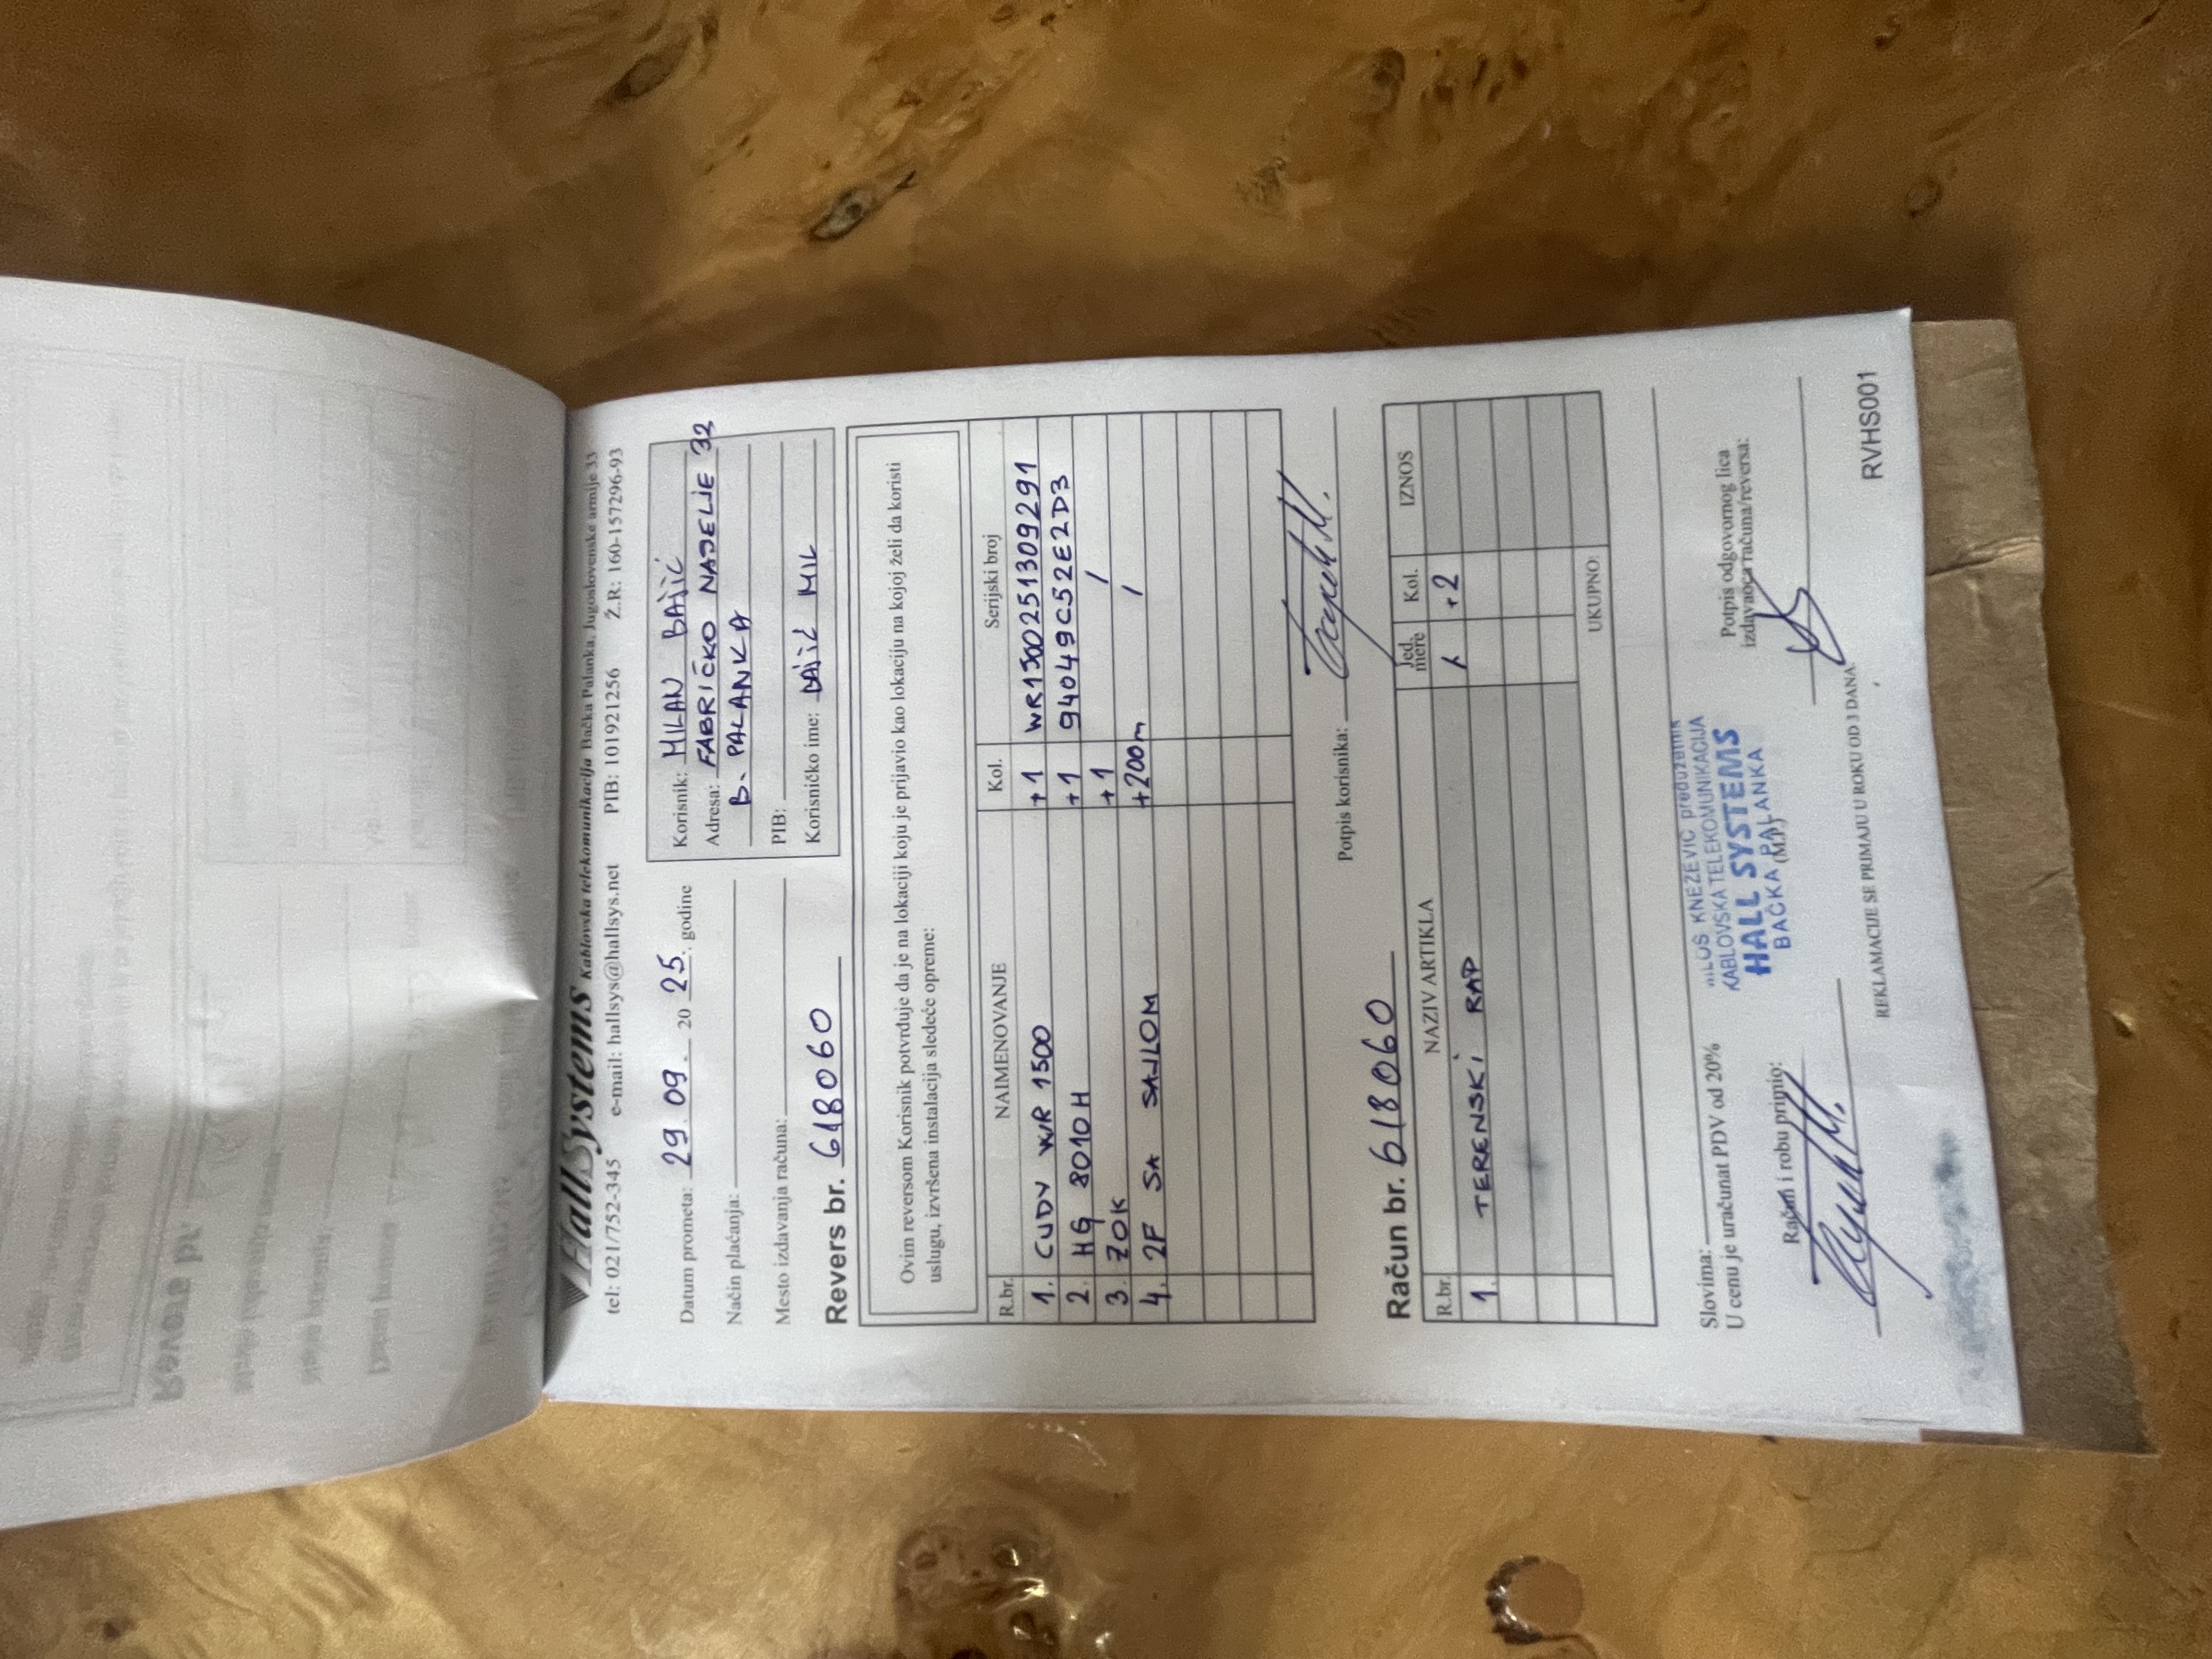 HallSystems Kablovska telekomunikacija Bačka Palanka, Jugoslovenske armije 33
tel: 021/752-345 e-mail: hallsys@hallsys.net PIB: 101921256 Ž.R: 160-157296-93
Datum prometa: 29. 09. 20 25. godine
Način plaćanja:
Mesto izdavanja računa:
Korisnik: MILAN BAJIĆ
Adresa: FABRIČKO NASELJE 32
B. PALANKA
PIB:
Korisničko ime: BAJIĆ MIL
Revers br. 618060
Ovim reversom Korisnik potvrđuje da je na lokaciji koju je prijavio kao lokaciju na kojoj želi da koristi
uslugu, izvršena instalacija sledeće opreme:
R.br. NAIMENOVANJE Kol. Serijski broj
1. CUDY WR 1500 +1 WR15002513092 91
2. HG 8010H +1 94049C52E2D3
3. ZOK +1 /
4. 2F SA SAJLOM +200m /
Potpis korisnika:
Račun br. 618060
R.br. NAZIV ARTIKLA Jed. mere Kol. IZNOS
1. TERENSKI RAD / +2
UKUPNO:
Slovima:
U cenu je uračunat PDV od 20%
Račun i robu primio:
MILOŠ KNEŽEVIĆ preduzetnik
KABLOVSKA TELEKOMUNIKACIJA
HALL SYSTEMS
BAČKA PALANKA
(M.P.)
Potpis odgovornog lica
izdavaoca računa/reversa:
REKLAMACIJE SE PRIMAJU U ROKU OD 3 DANA
RVHS001